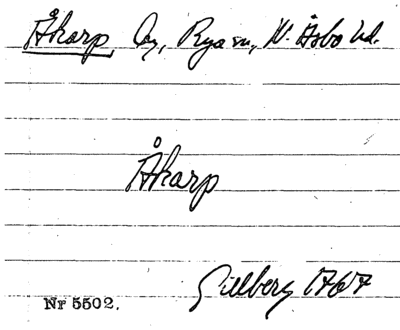 Åkarp by, Rya sn, N. Åsbo hd.
Åkarp
Gillberg 1767
Nr 5502.